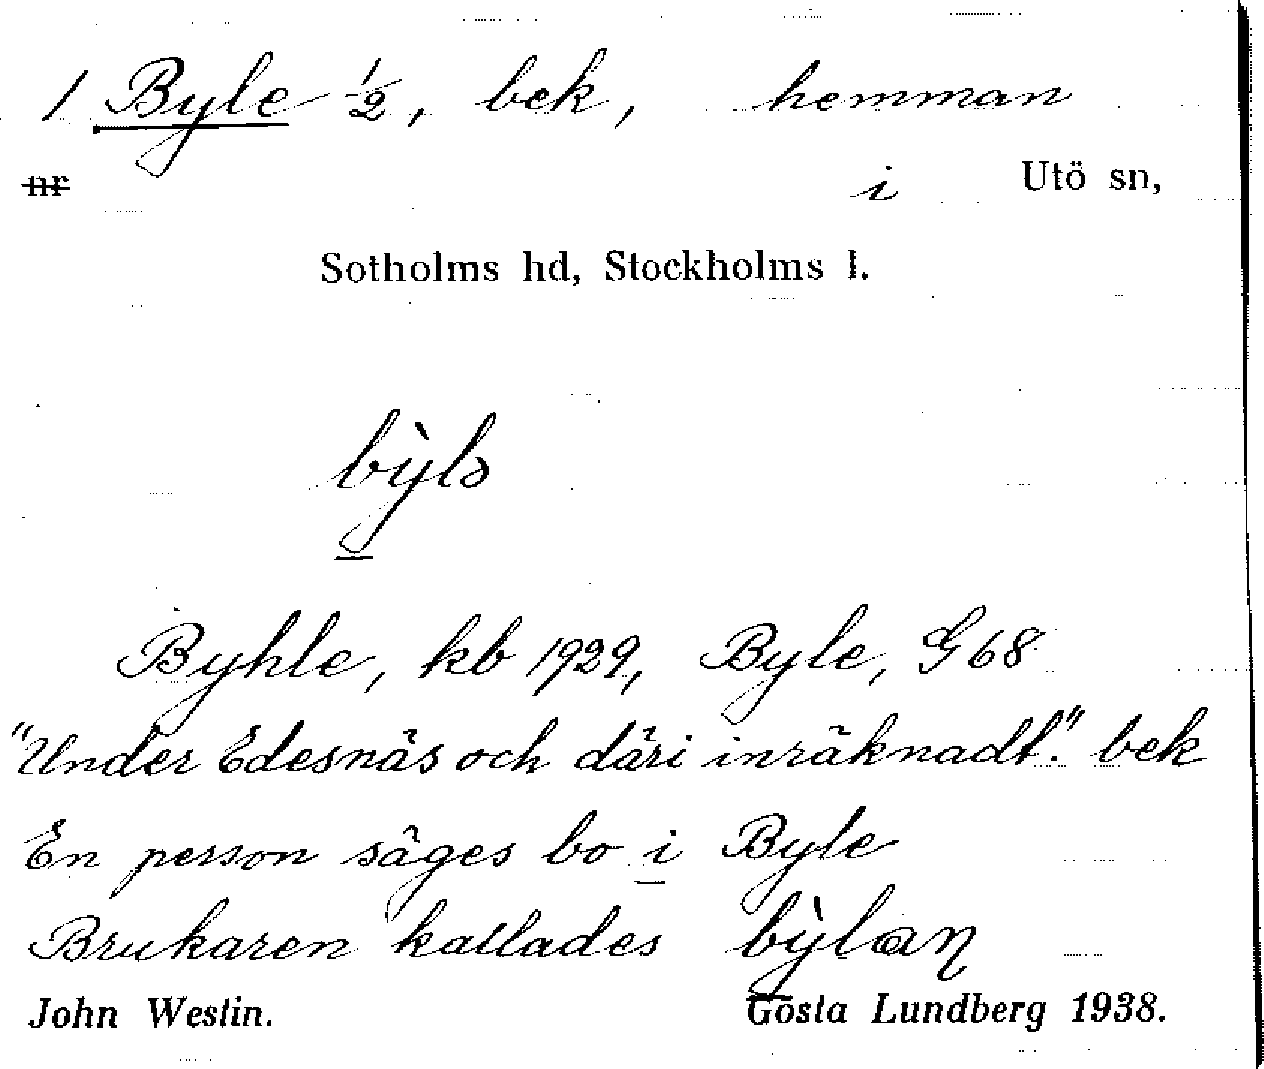 1 Byle ½, bek, hemman
nr i Utö sn,
Sotholms hd, Stockholms l.
bỳlə
Byhle, kb 1929, Byle, G68
"Under Edesnäs och däri inräknadt." bek
En person säges bo i Byle
Brukaren kallades bỳlaŋ
John Westin. Gösta Lundberg 1938.